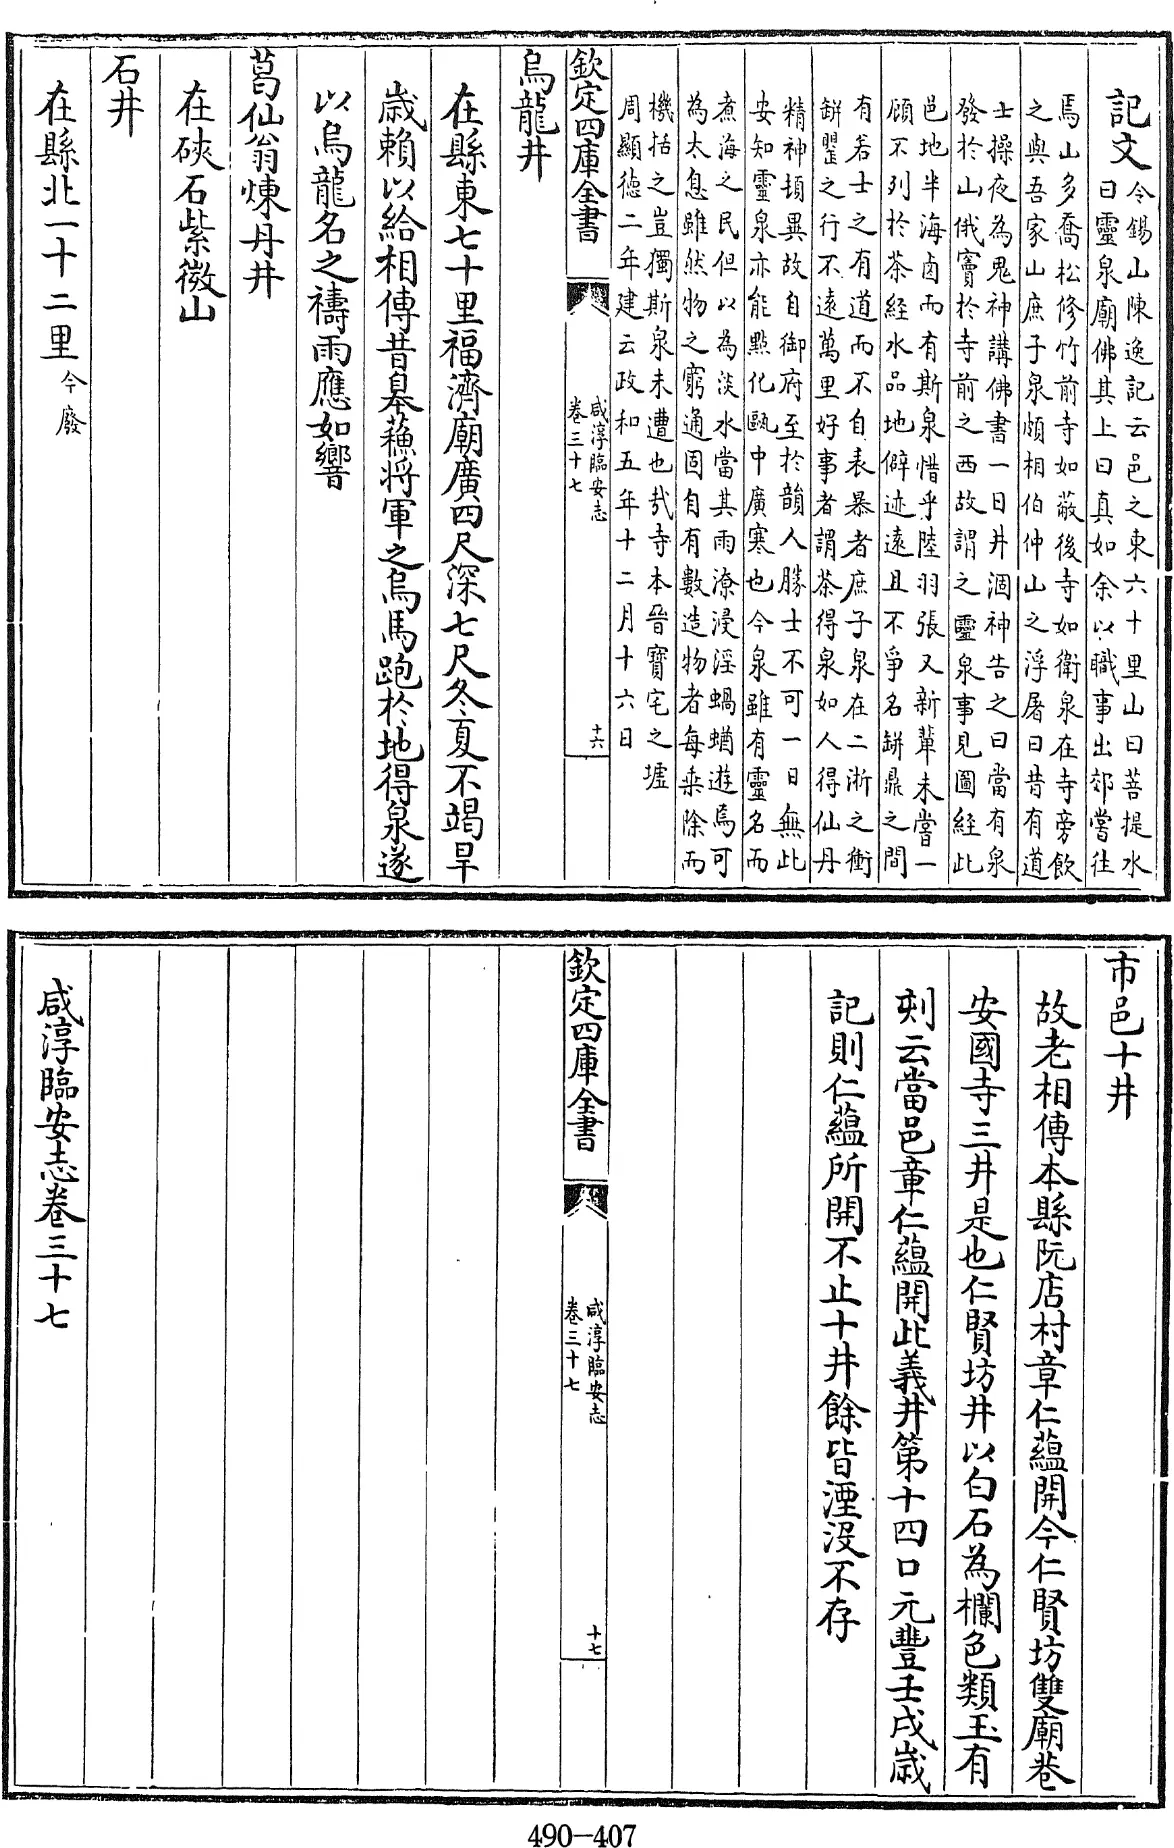 記文
令錫山陳逸記云邑之東六十里山曰菩提水
曰靈泉廟佛其上曰真如余以職事出郊嘗往
焉山多喬松修竹前寺如蔽後寺如衛泉在寺旁飲
之與吾家山庶子泉頗相伯仲山之浮屠曰昔有道
士操夜為鬼神講佛書一日井涸神告之曰當有泉
發於山俄竇於寺前之西故謂之靈泉事見圖經此
邑地半海鹵而有斯泉惜乎陸羽張又新輩未嘗一
顧不列於茶經水品地僻迹遠且不爭名缾鼎之間
有若士之有道而不自表暴者庶子泉在二浙之衝
缾罌之行不遠萬里好事者謂茶得泉如人得仙丹
精神頓異故自御府至於韻人勝士不可一日無此
安知靈泉亦能點化甌中廣寒也今泉雖有靈名而
煮海之民但以為淡水當其雨潦浸淫蝸蝤遊焉可
為太息雖然物之窮通固自有數造物者每乘除而
機括之豈獨斯泉未遭也㢤寺本晉寶宅之墟
周顯徳二年建云政和五年十二月十六日
欽定四庫全書
咸淳臨安志
卷三十七
十六
烏龍井
在縣東七十里福濟廟廣四尺深七尺冬夏不竭旱
歲賴以給相傳昔皋蘓將軍之烏馬跑於地得泉遂
以烏龍名之禱雨應如響
葛仙翁煉丹井
在硤石紫微山
石井
在縣北一十二里今廢
市邑十井
故老相傳本縣阮店村章仁蘊開今仁賢坊雙廟巷
安國寺三井是也仁賢坊井以白石為欄色類玉有
刺云當邑章仁蘊開此義井第十四口元豐壬戌歲
記則仁蘊所開不止十井餘皆湮沒不存
欽定四庫全書
咸淳臨安志
卷三十七
十七
咸淳臨安志卷三十七
490-407